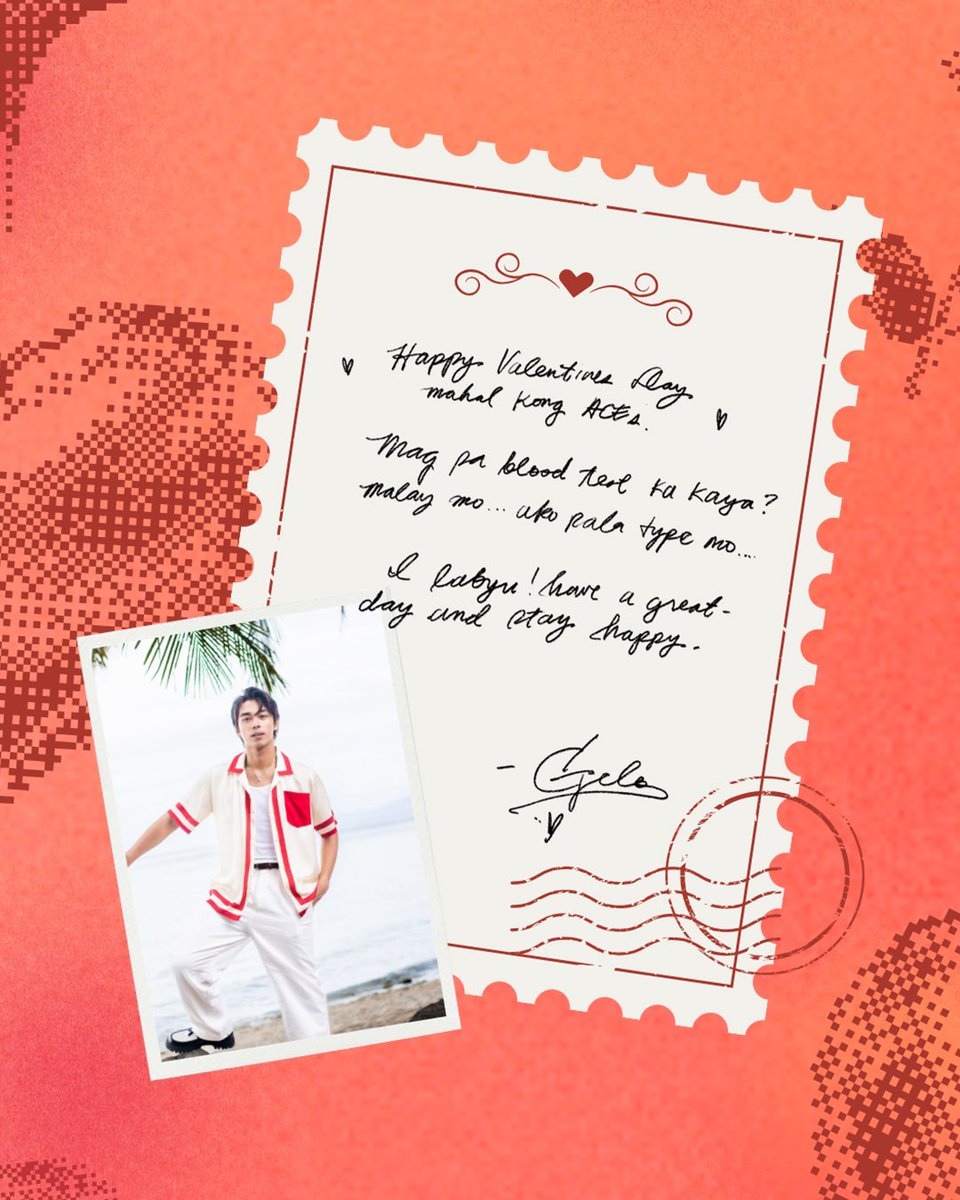 Happy Valentines Day
mahal kong ACEs.
Mag pa blood test ka kaya?
malay mo... ako pala type mo...
I labyu! have a great
day and stay happy.
- Gelo